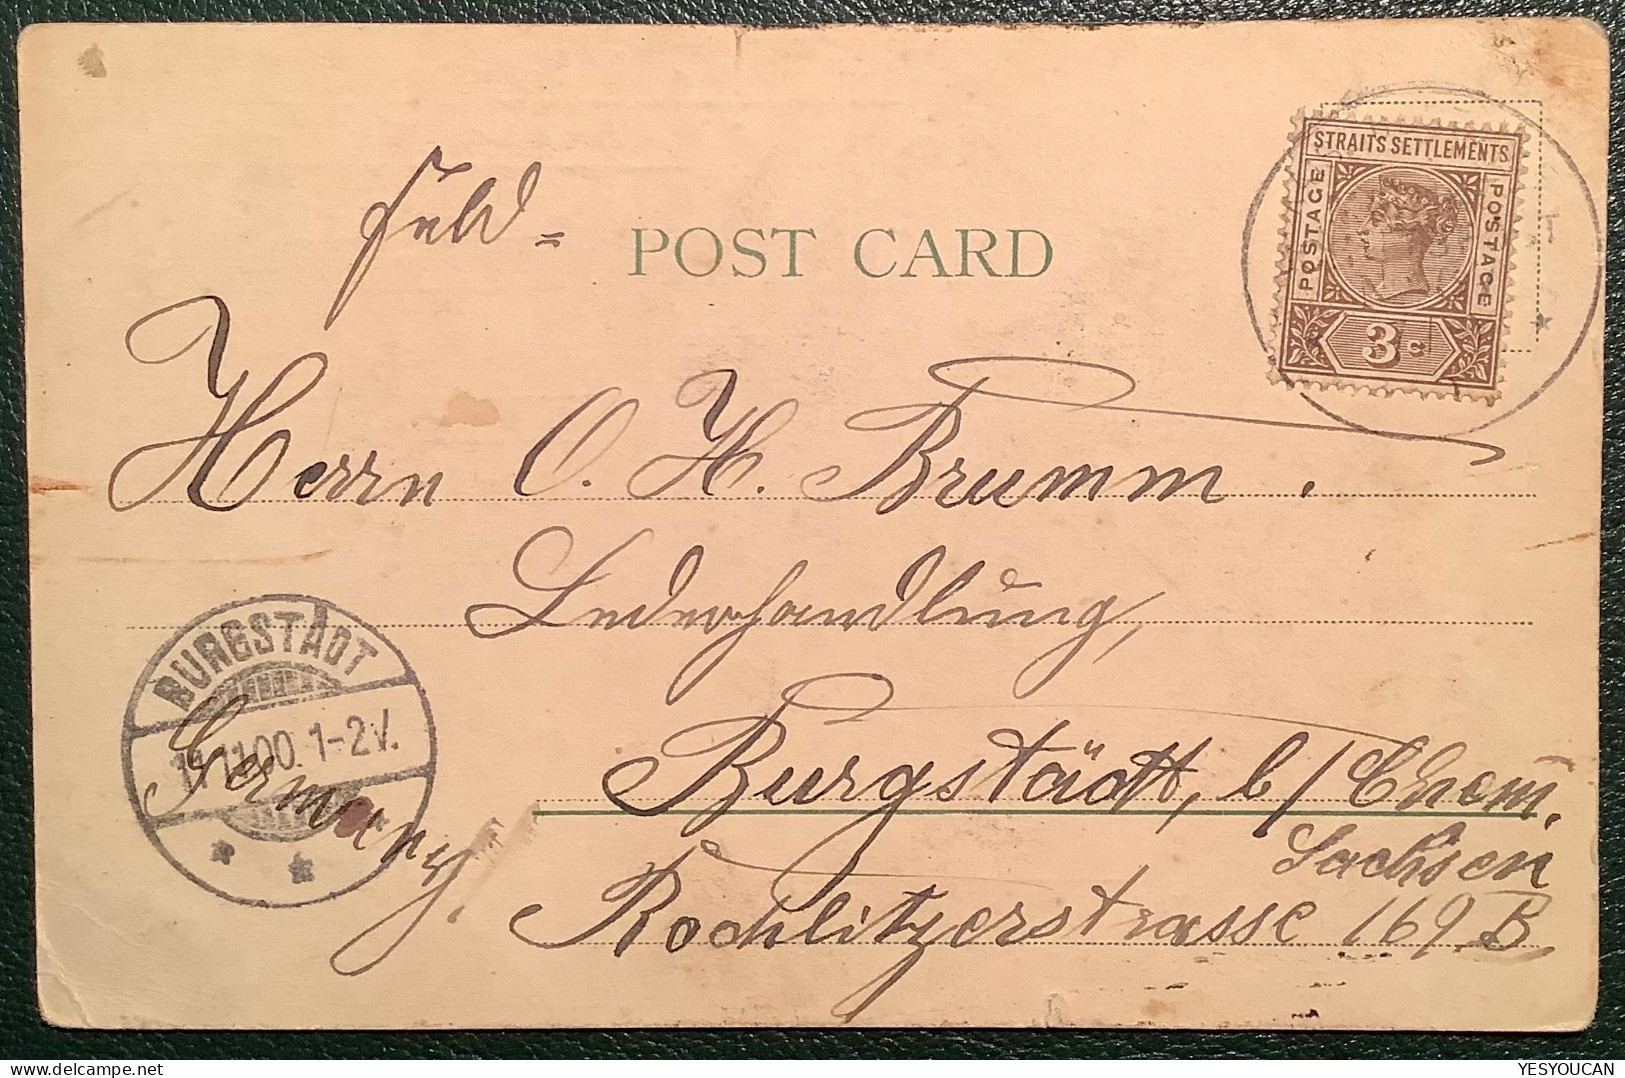 Feld =
POST CARD
STRAITS SETTLEMENTS
POSTAGE
POSTAGE
3 c
Herrn O. H. Brumm.
Lederhandlung,
Burgstädt, b/ Chem.
Sachsen
Rochlitzerstrasse 169 B
Germany.
BURGSTÄDT
11.11.00. 1-2V.
* *
YESYOUCAN